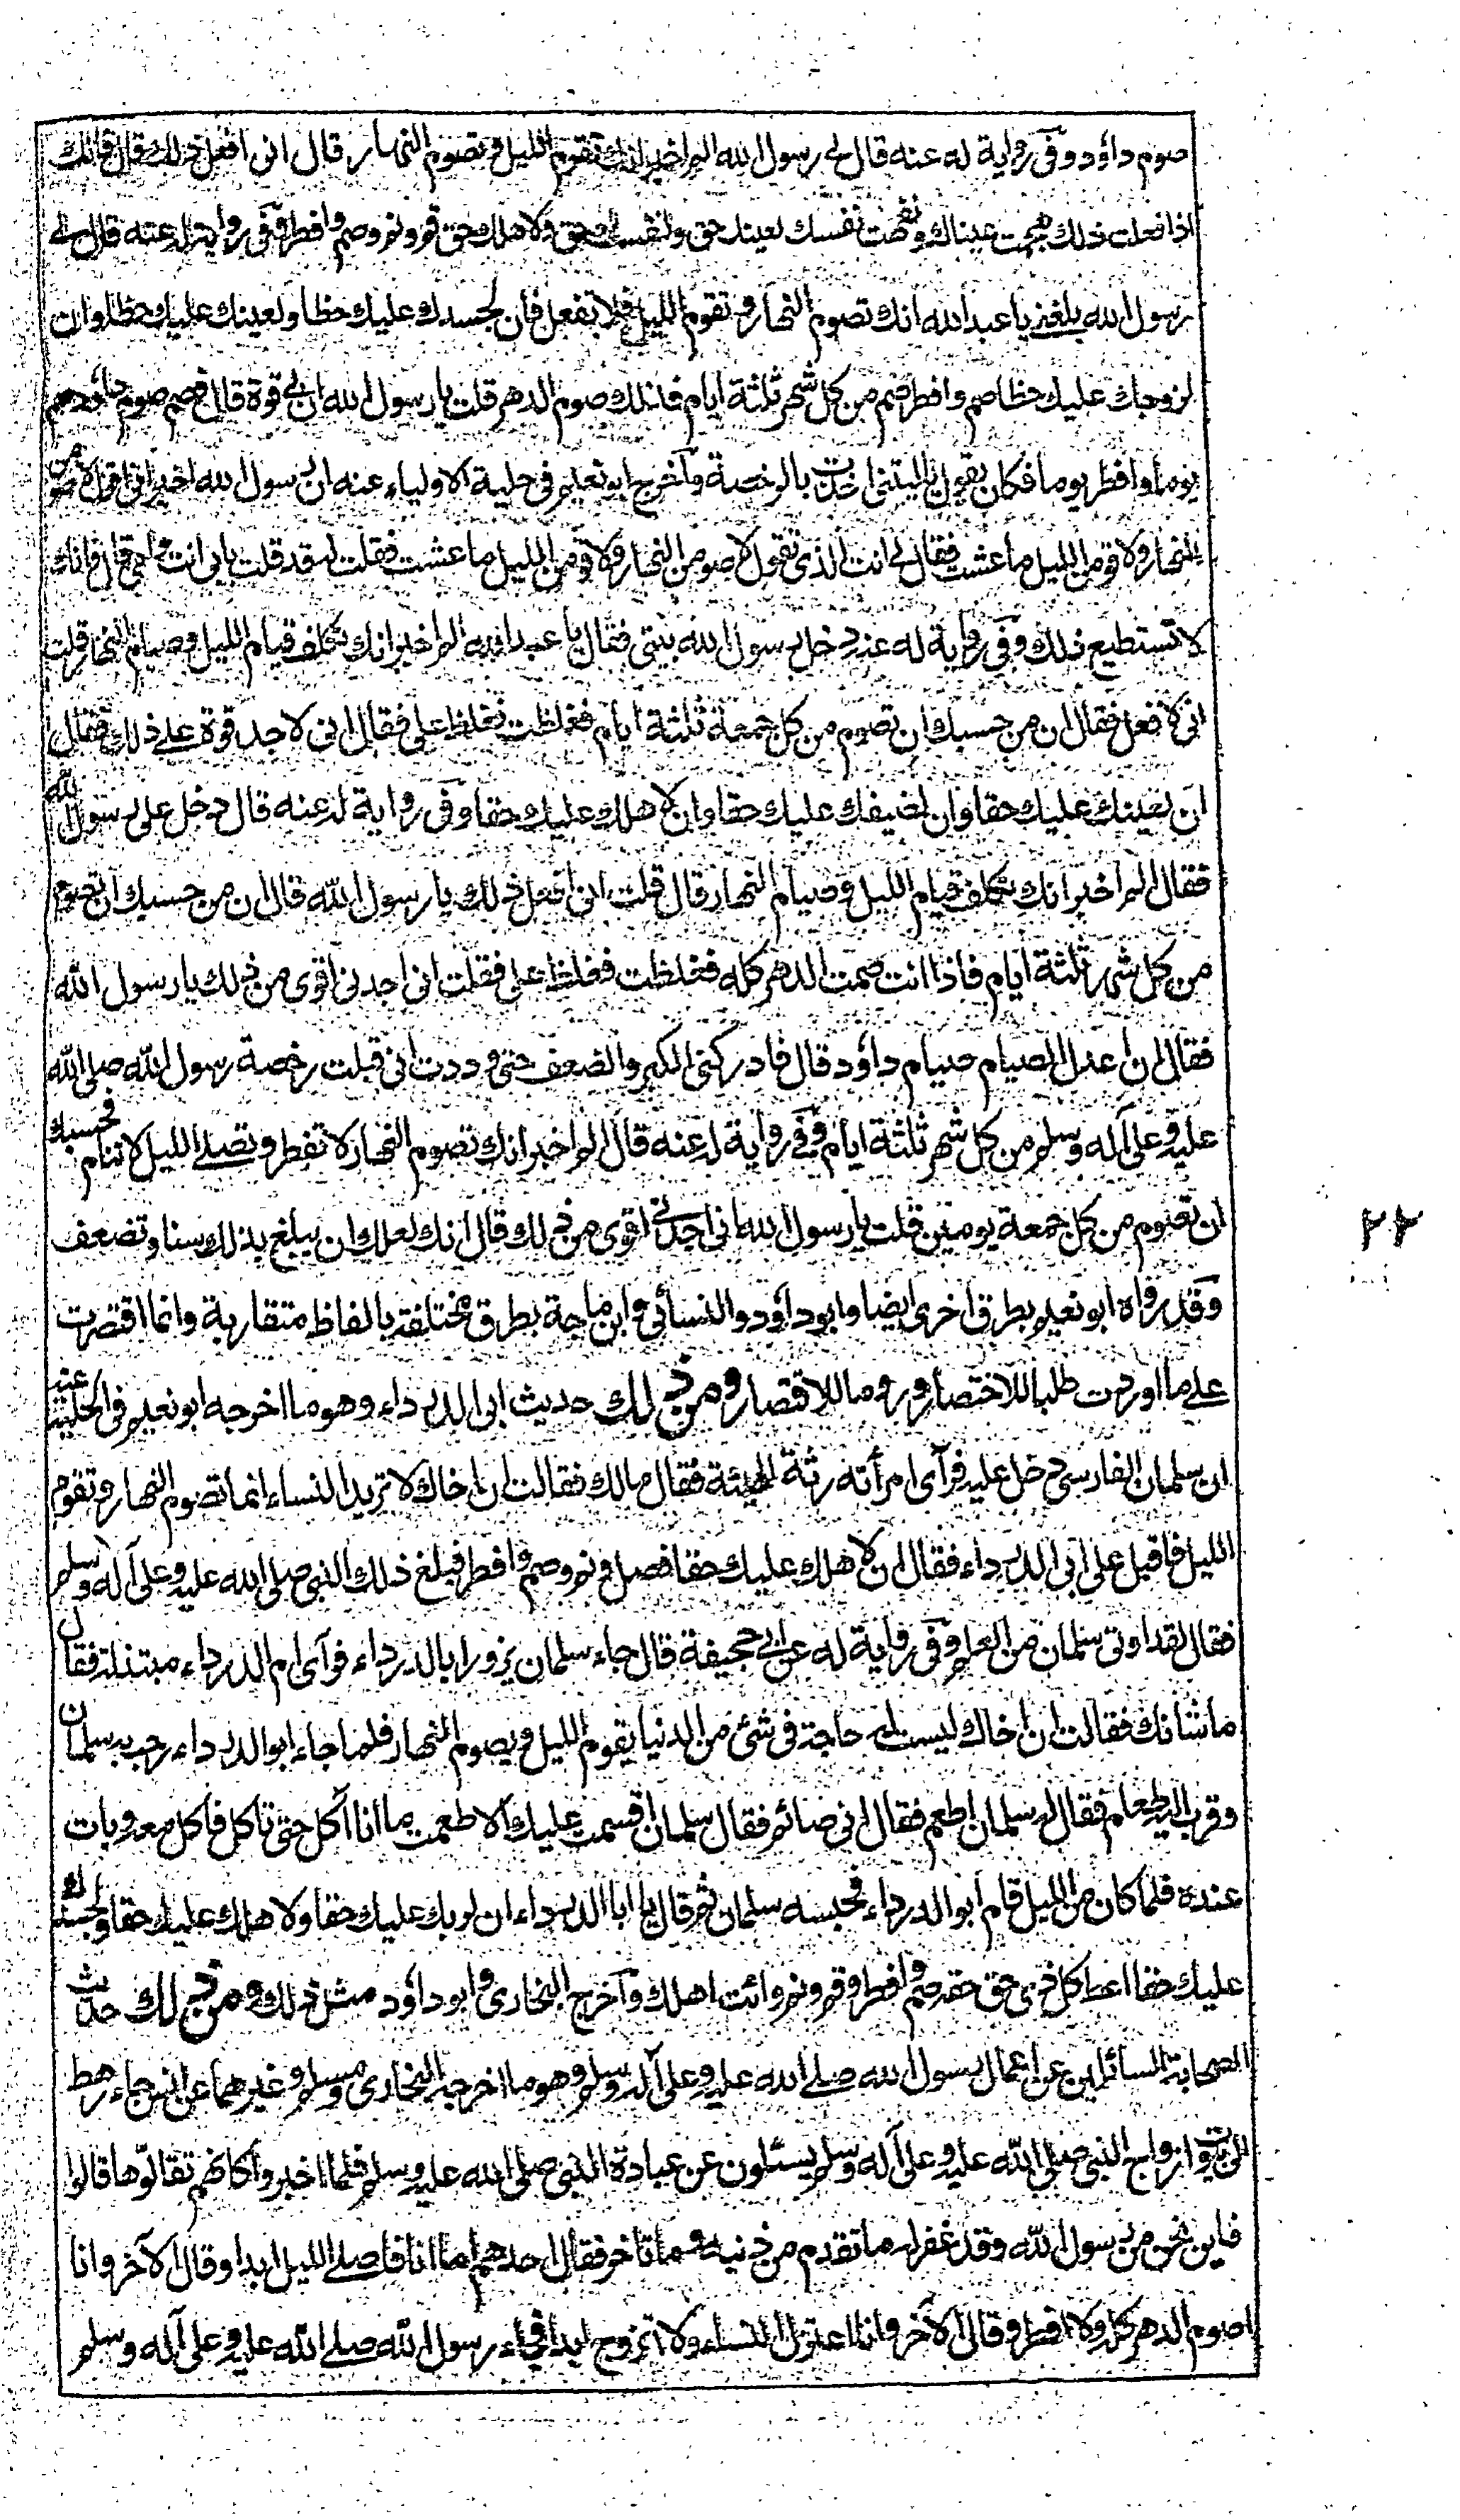 صوم داؤد وفى رواية له عنه قال لى رسول الله الم اخبر انك تقوم الليل وتصوم النهار قال انى افعل ذلك قال فانك
اذا فعلت ذلك هجمت عيناك ونفهت نفسك لعينك حق ولنفسك حق ولاهلك حق قم ونم وصم وافطر وفى رواية له عنه قال لى
رسول الله بلغنى يا عبد الله انك تصوم النهار وتقوم الليل فلا تفعل فان لجسدك عليك حظا ولعينك عليك حظا وان
لزوجك عليك حظا صم وافطر صم من كل شهر ثلثة ايام فذلك صوم الدهر قلت يا رسول الله ان بى قوة قال فصم صوم داؤد صم
يوما وافطر يوما فكان يقول يا ليتنى اخذت بالرخصة وآخرج ابو نعيم فى حلية الاولياء عنه ان رسول الله اخبر انى اقول لاصومن
النهار ولاقومن الليل ما عشت فقال لى انت الذى تقول لاصومن النهار ولاقومن الليل ما عشت فقلت له قد قلت بابى انت وامى قال فانك
لا تستطيع ذلك وفى رواية له عنه دخل رسول الله بيتى فقال يا عبد الله الم اخبر انك تكلف قيام الليل وصيام النهار قلت
انى لافعل فقال ان من حسبك ان تصوم من كل جمعة ثلثة ايام فغلظت فغلظ على فقال انى لاجد قوة على ذلك فقال
ان لعينك عليك حقا وان لضيفك عليك حقا وان لاهلك عليك حقا وفى رواية له عنه قال دخل على رسول الله
فقال الم اخبر انك تكلف قيام الليل وصيام النهار قال قلت انى افعل ذلك يا رسول الله قال ان من حسبك ان تصوم
من كل شهر ثلثة ايام فاذا انت صمت الدهر كله فغلظت فغلظ على فقلت انى اجدنى اقوى من ذلك يا رسول الله
فقال ان اعدل الصيام صيام داؤد قال فادركنى الكبر والضعف حتى وددت انى قبلت رخصة رسول الله صلى الله
عليه وعلى آله وسلم من كل شهر ثلثة ايام وفى رواية له عنه قال الم اخبر انك تصوم النهار لا تفطر وتصلى الليل لا تنام فحسبك
ان تصوم من كل جمعة يومين قلت يا رسول الله انى اجدنى اقوى من ذلك قال انك لعلك ان يبلغ بذلك سنا وتضعف
وقد رواه ابو نعيم بطرق اخرى ايضا وابو داؤد والنسائى وابن ماجة بطرق مختلفة بالفاظ متقاربة وانما اقتصرت
على ما اوردت طلبا للاختصار وروما للاقتصار ومن ذلك حديث ابى الدرداء وهو ما اخرجه ابو نعيم فى الحلية عنه
ان سلمان الفارسى دخل عليه فرآى امرأته رثة الهيئة فقال مالك فقالت ان اخاك لا تريد النساء انما تصوم النهار وتقوم
الليل فاقبل على ابى الدرداء فقال ان لاهلك عليك حقا فصل ونم وصم وافطر فبلغ ذلك النبى صلى الله عليه وعلى آله وسلم
فقال لقد اوتى سلمان من العلم وفى رواية له عن ابى جحيفة قال جاء سلمان يزور ابا الدرداء فرآى ام الدرداء مبتذلة فقال
ما شانك فقالت ان اخاك ليست له حاجة فى شئ من الدنيا يقوم الليل ويصوم النهار فلما جاء ابو الدرداء رحب به سلمان
وقرب اليه طعام فقال له سلمان اطعم فقال انى صائم فقال سلمان اقسمت عليك الا طعمت ما انا آكل حتى تاكل فاكل معه وبات
عنده فلما كان من الليل قام ابو الدرداء فحبسه سلمان ثم قال يا ابا الدرداء ان لربك عليك حقا ولاهلك عليك حقا ولجسدك
عليك حقا اعط كل ذى حق حقه صم وافطر وقم ونم وائت اهلك وآخرج البخارى وابو داؤد مثل ذلك ومن ذلك حديث
الصحابة السائلين عن اعمال رسول الله صلى الله عليه وعلى آله وسلم وهو ما اخرجه البخارى ومسلم وغيرهما عن انس جاء رهط
الى بيوت ازواج النبى صلى الله عليه وعلى آله وسلم يسئلون عن عبادة النبى صلى الله عليه وسلم فلما اخبروا كانهم تقالوها قالوا
فاين نحن من رسول الله وقد غفر له ما تقدم من ذنبه وما تاخر فقال احدهم اما انا فاصلى الليل ابدا وقال الآخر وانا
اصوم الدهر كله ولا افطر وقال الآخر وانا اعتزل النساء ولا اتزوج ابدا فجاء رسول الله صلى الله عليه وعلى آله وسلم
٢٢